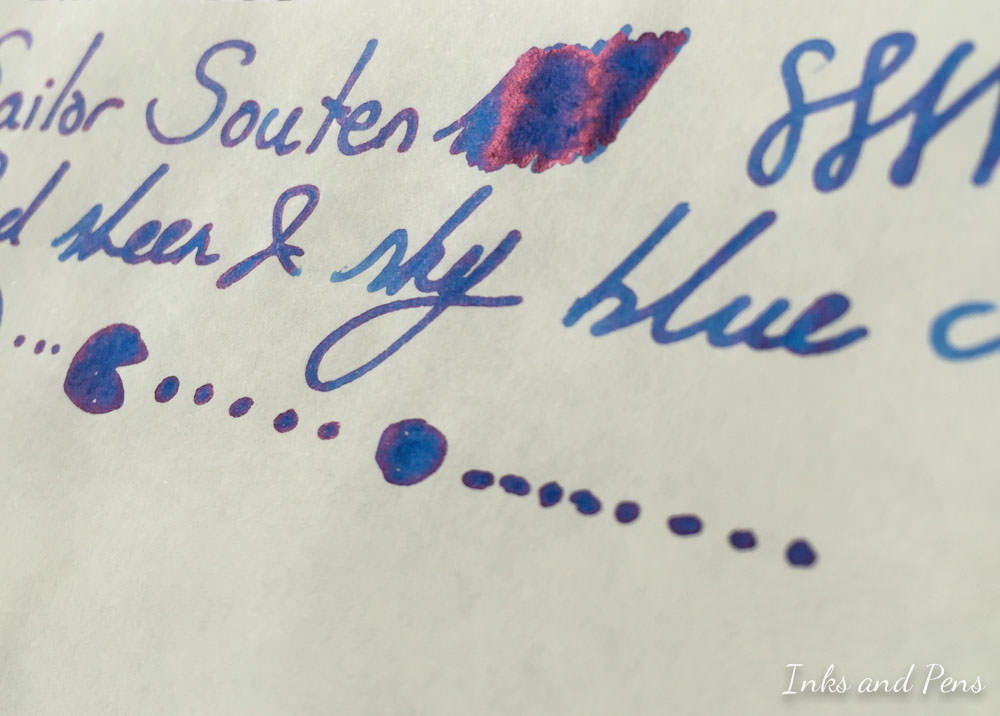 Sailor Souten
Red sheen & sky blue c
Inks and Pens